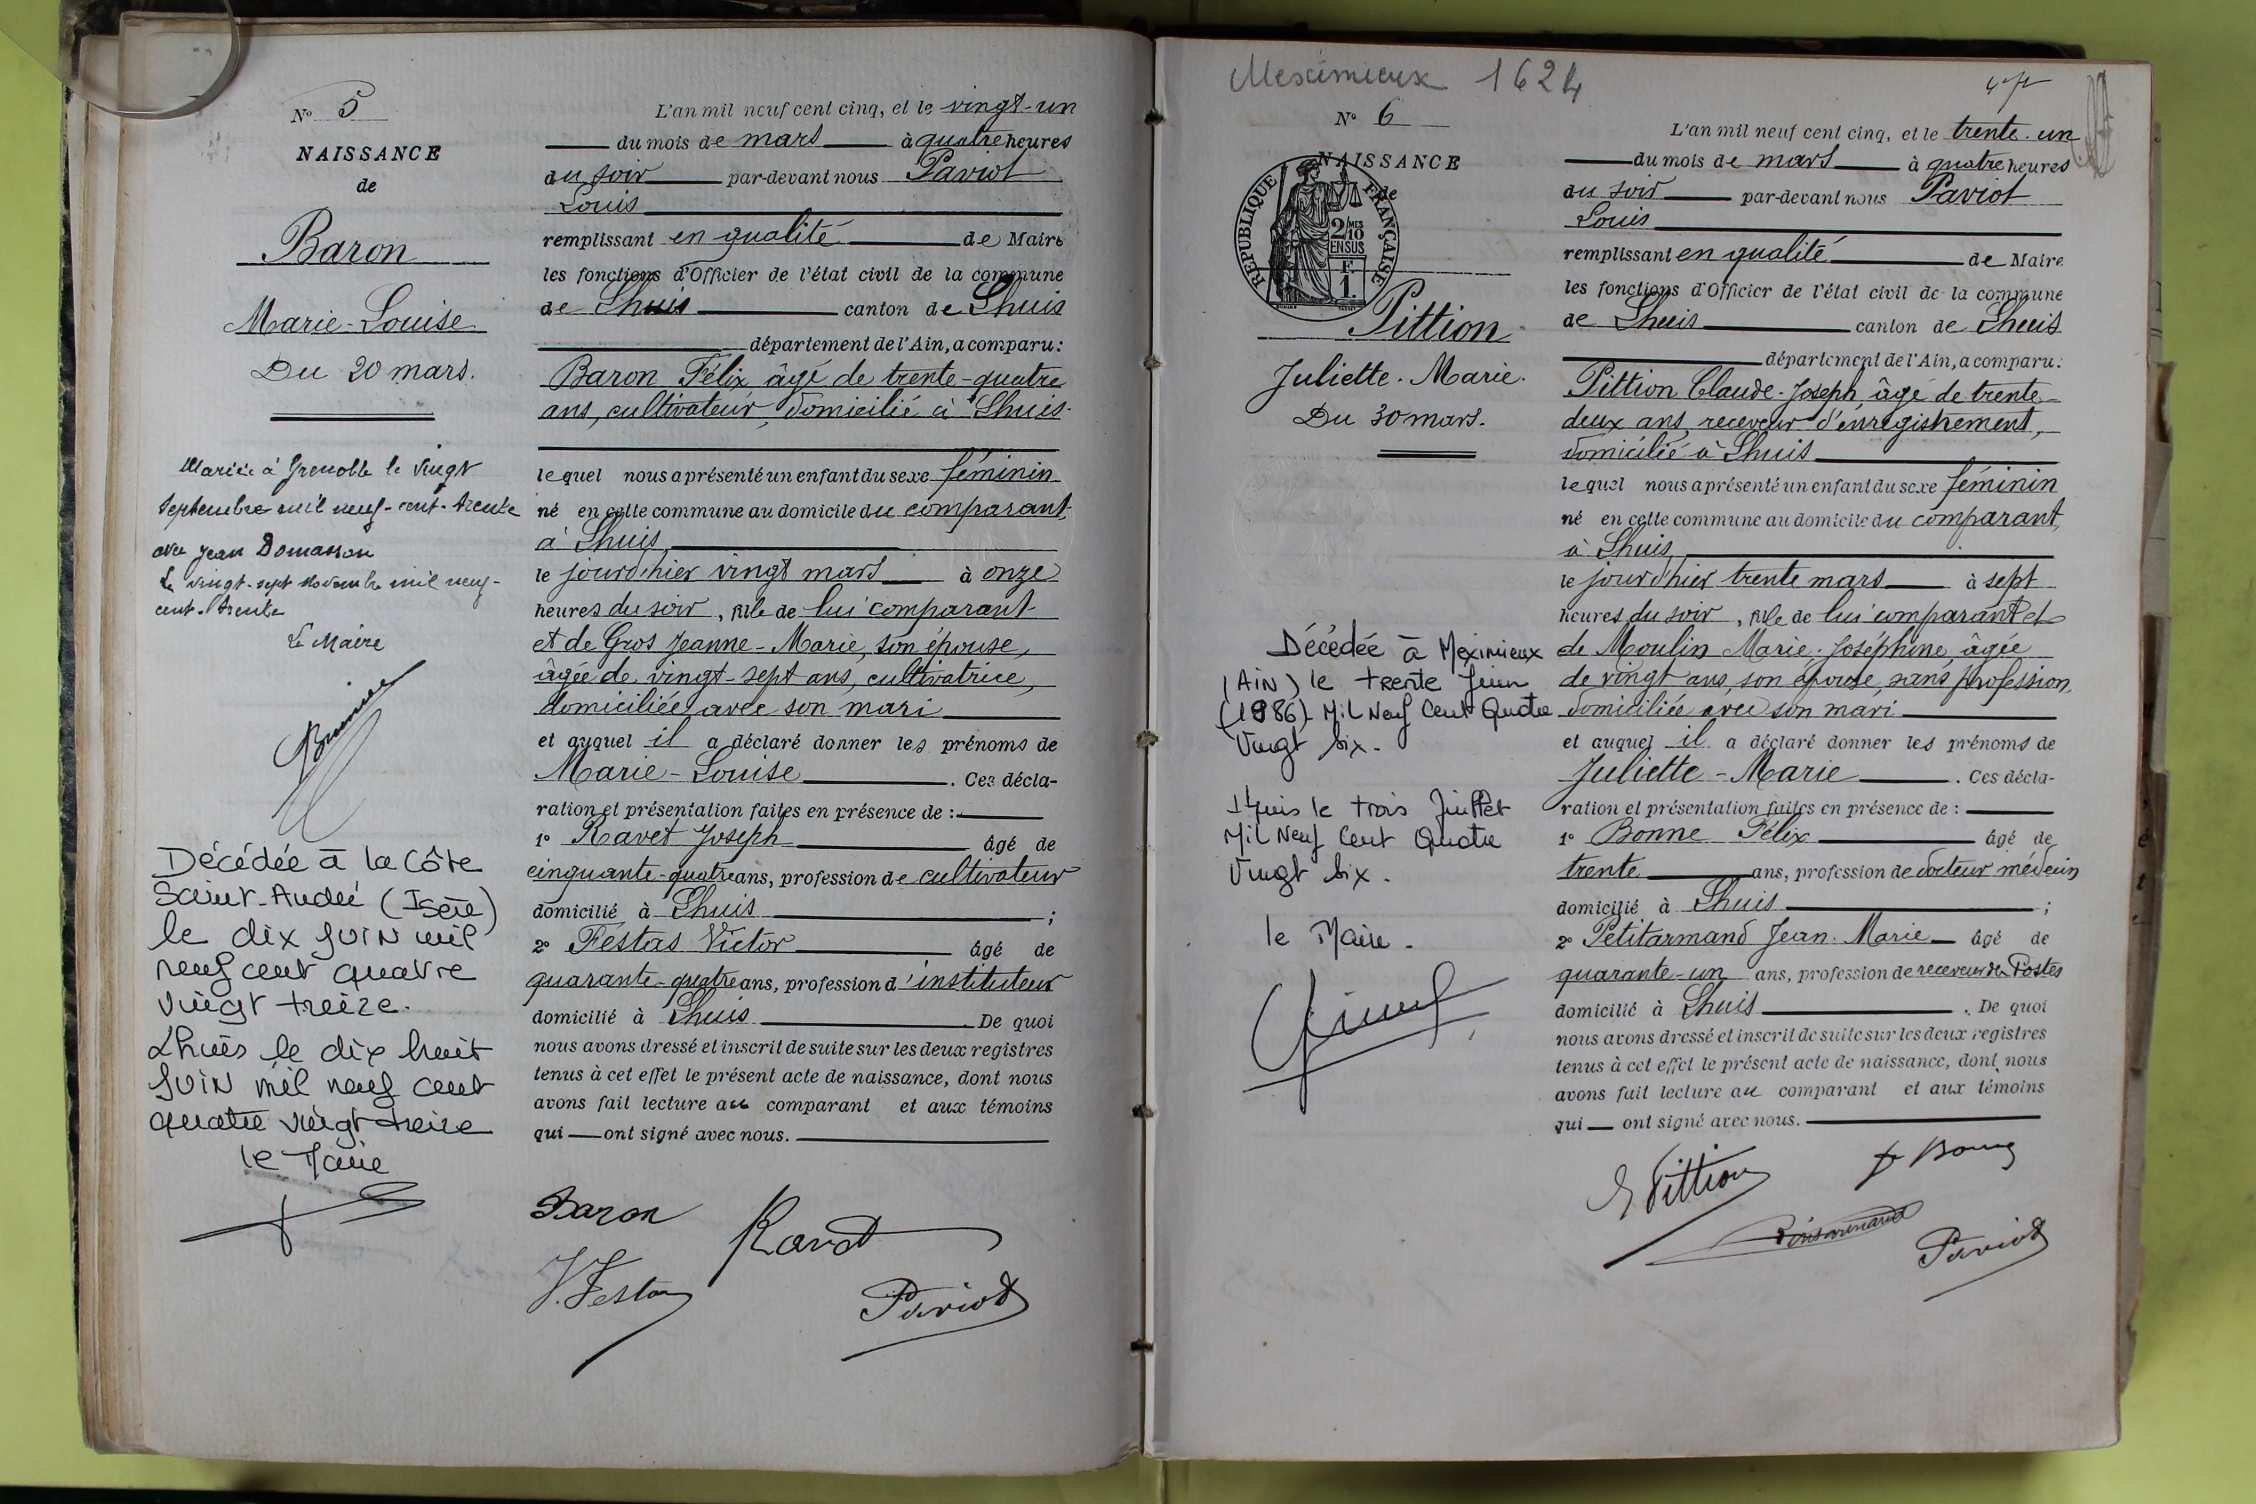 N° 5
NAISSANCE
de
Baron
Marie-Louise
Du 20 mars.
Mariée à Grenoble le vingt
septembre mil neuf-cent-trente
avec Jean Domasson
Le vingt-sept novembre mil neuf-
cent-trente
Le Maire
Décédée à la Côte
Saint-André (Isère)
le dix juin mil
neuf cent quatre
vingt treize.
Lhuis le dix huit
juin mil neuf cent
quatre vingt treize
le Maire
L'an mil neuf cent cinq, et le vingt-un
du mois de mars à quatre heures
du soir par-devant nous Paviot
Louis
remplissant en qualité de Maire
les fonctions d'Officier de l'état civil de la commune
de Lhuis canton de Lhuis
département de l'Ain, a comparu:
Baron Félix âgé de trente-quatre
ans, cultivateur, domicilié à Lhuis
lequel nous a présenté un enfant du sexe féminin
né en cette commune au domicile du comparant,
à Lhuis,
le jourd'hier vingt mars à onze
heures du soir, fille de lui comparant
et de Gros Jeanne-Marie, son épouse,
âgée de vingt-sept ans, cultivatrice,
domiciliée avec son mari
et auquel il a déclaré donner les prénoms de
Marie-Louise. Ces décla-
ration et présentation faites en présence de :
1° Ravet Joseph âgé de
cinquante-quatre ans, profession de cultivateur
domicilié à Lhuis ;
2° Festas Victor âgé de
quarante-quatre ans, profession d'instituteur
domicilié à Lhuis De quoi
nous avons dressé et inscrit de suite sur les deux registres
tenus à cet effet le présent acte de naissance, dont nous
avons fait lecture au comparant et aux témoins
qui ont signé avec nous.
Baron
Ravet
V. Festas
Paviot
Meximieux 1624
N° 6
NAISSANCE
de
RÉPUBLIQUE FRANÇAISE
2/10 MES
EN SUS
F.
1.
Pittion
Juliette-Marie.
Du 30 mars.
Décédée à Meximieux
(Ain) le trente Juin
(1986) Mil Neuf Cent Quatre
Vingt Six.
Lhuis le trois Juillet
Mil Neuf Cent Quatre
Vingt Six.
le Maire.
L'an mil neuf cent cinq, et le trente-un
du mois de mars à quatre heures
du soir par-devant nous Paviot
Louis
remplissant en qualité de Maire
les fonctions d'Officier de l'état civil de la commune
de Lhuis canton de Lhuis
département de l'Ain, a comparu:
Pittion Claude-Joseph, âgé de trente-
deux ans, receveur d'énregistrement,
domicilié à Lhuis
lequel nous a présenté un enfant du sexe féminin
né en cette commune au domicile du comparant,
à Lhuis,
le jourd'hier trente mars à sept
heures du soir, fille de lui comparant et
de Moulin Marie-Joséphine, âgée
de vingt ans, son épouse, sans profession,
domiciliée avec son mari
et auquel il a déclaré donner les prénoms de
Juliette-Marie. Ces décla-
ration et présentation faites en présence de :
1° Bonne Félix âgé de
trente ans, profession de docteur médecin
domicilié à Lhuis ;
2° Petitarmand Jean-Marie âgé de
quarante-un ans, profession de receveur des Postes
domicilié à Lhuis. De quoi
nous avons dressé et inscrit de suite sur les deux registres
tenus à cet effet le présent acte de naissance, dont nous
avons fait lecture au comparant et aux témoins
qui ont signé avec nous.
Pittion
F Bonne
Petitarmand
Paviot